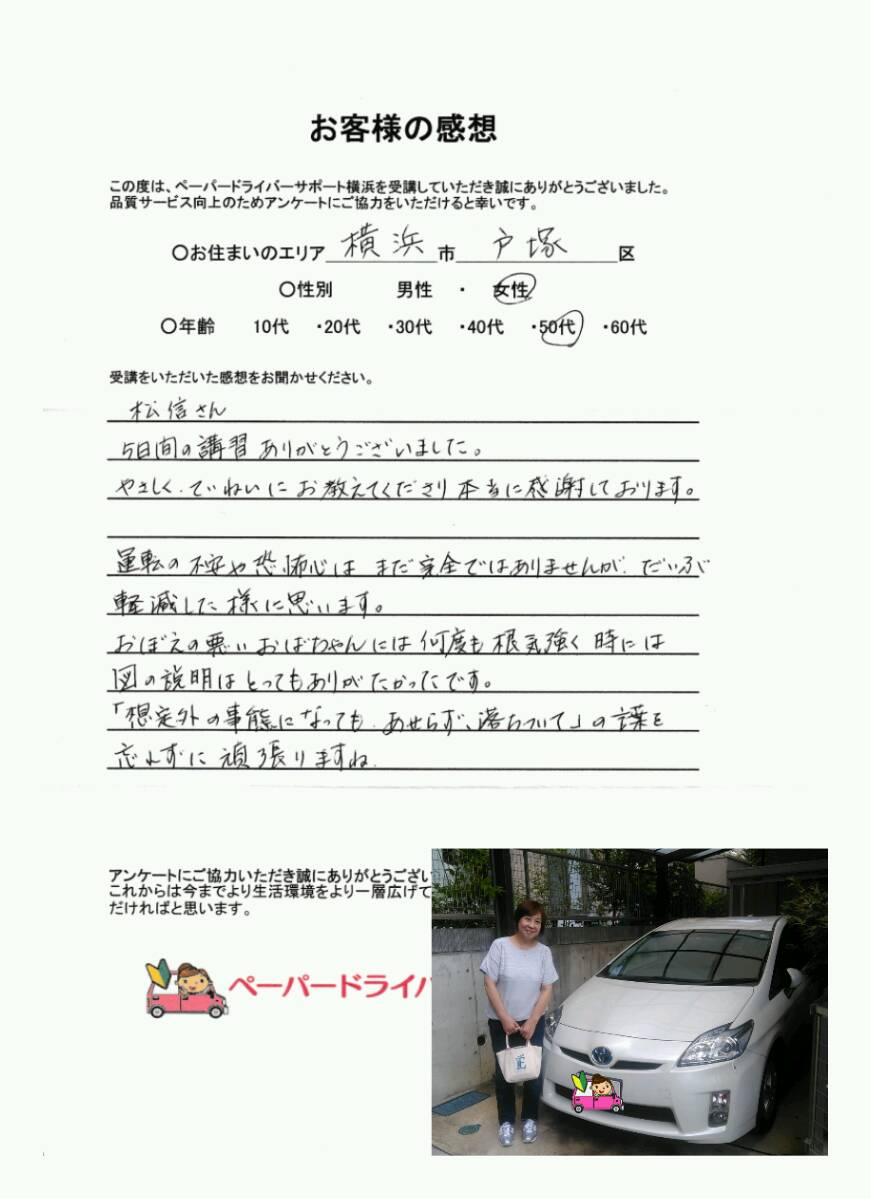 お客様の感想
この度は、ペーパードライバーサポート横浜を受講していただき誠にありがとうございました。
品質サービス向上のためアンケートにご協力をいただけると幸いです。
〇お住まいのエリア 横浜 市 戸塚 区
〇性別 男性 ・ 女性
〇年齢 10代 ・20代 ・30代 ・40代 ・50代 ・60代
受講をいただいた感想をお聞かせください。
松信さん
5日間の講習ありがとうございました。
やさしく、ていねいにお教えてくださり本当に感謝しております。
運転の不安や恐怖心はまだ完全ではありませんが、だいぶ
軽減した様に思います。
おぼえの悪いおばちゃんには何度も根気強く時には
図の説明はとってもありがたかったです。
「想定外の事態になっても、あせらず、落ちついて」の言葉を
忘れずに頑張りますね.
アンケートにご協力いただき誠にありがとうござい
これからは今までより生活環境をより一層広げて
だければと思います。
ペーパードライバ